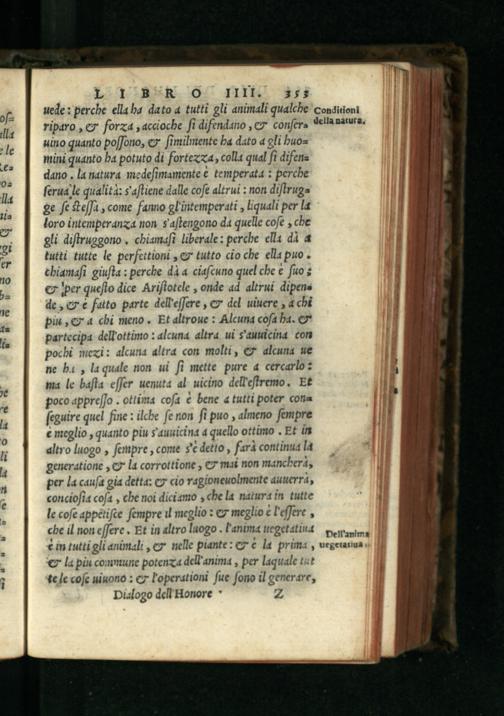 LIBRO IIII. 353
uede: perche ella ha dato a tutti gli animali qualche
Conditioni
della natura.
riparo, & forza, accioche si difendano, & conser-
uino quanto possono, & similmente ha dato a gli huo-
mini quanto ha potuto di fortezza, colla qual si difen-
dano. la natura medesimamente è temperata: perche
serua le qualità: s'astiene dalle cose altrui: non distrug-
ge se stessa, come fanno gl'intemperati, liquali per la
loro intemperanza non s'astengono da quelle cose, che
gli distruggono. chiamasi liberale: perche ella dà a
tutti tutte le perfettioni, & tutto cio che ella puo.
chiamasi giusta: perche dà a ciascuno quel che è suo:
& per questo dice Aristotele, onde ad altrui dipen-
de, & è fatto parte dell'essere, & del uiuere, a chi
piu, & a chi meno. Et altroue: Alcuna cosa ha. &
partecipa dell'ottimo: alcuna altra ui s'auuicina con
pochi mezi: alcuna altra con molti, & alcuna ue
ne ha, la quale non ui si mette pure a cercarlo:
ma le basta esser uenuta al uicino dell'estremo. Et
poco appresso. ottima cosa è bene a tutti poter con-
seguire quel fine: ilche se non si puo, almeno sempre
è meglio, quanto piu s'auuicina a quello ottimo. Et in
altro luogo, sempre, come s'è detto, farà continua la
generatione, & la corrottione, & mai non mancherà,
per la causa gia detta: & cio ragioneuolmente auuerrà,
conciosia cosa, che noi diciamo, che la natura in tutte
le cose appetisce sempre il meglio: & meglio è l'essere,
che il non essere. Et in altro luogo. l'anima uegetatiua
Dell'anima
uegetatiua.
è in tutti gli animali, & nelle piante: & è la prima,
& la piu commune potenza dell'anima, per laquale tut
te le cose uiuono: & l'operationi sue sono il generare,
Dialogo dell'Honore Z